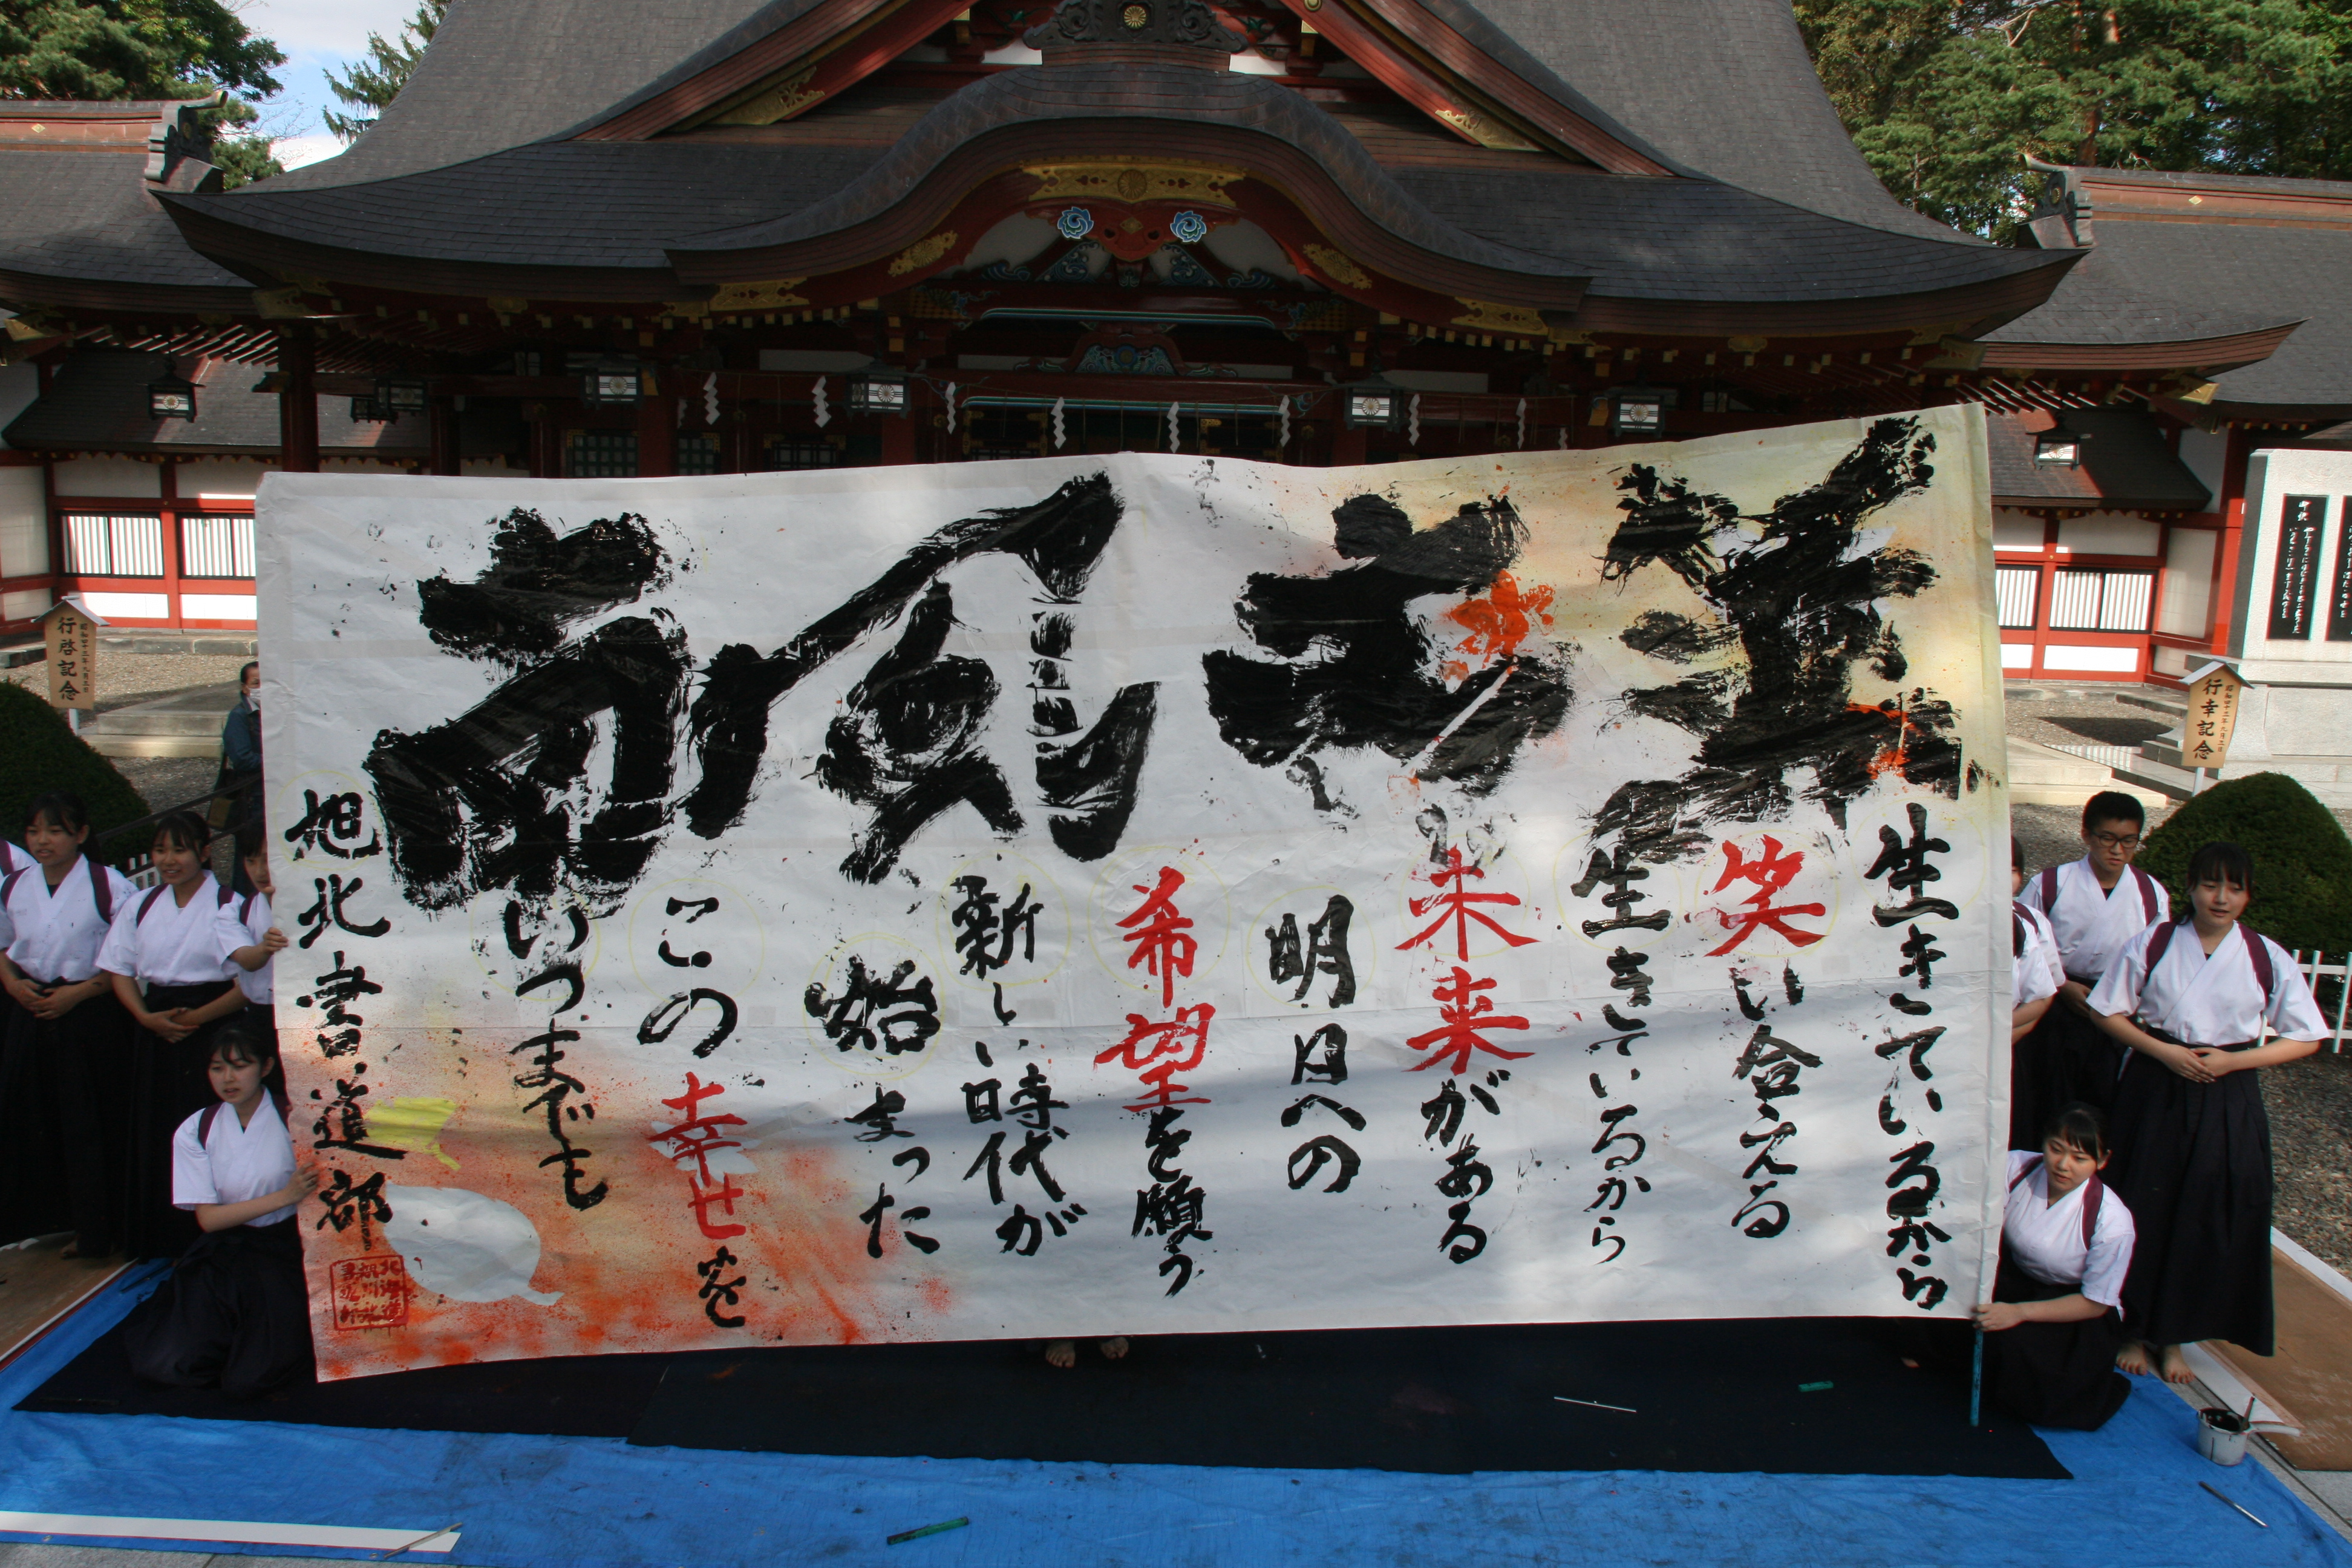 生きているから
笑い合える
生きているから
未来がある
明日への
希望を願う
新しい時代が
始まった
この幸せを
いつまでも
旭北書道部
北海道
旭川北
行幸記念
行啓記念